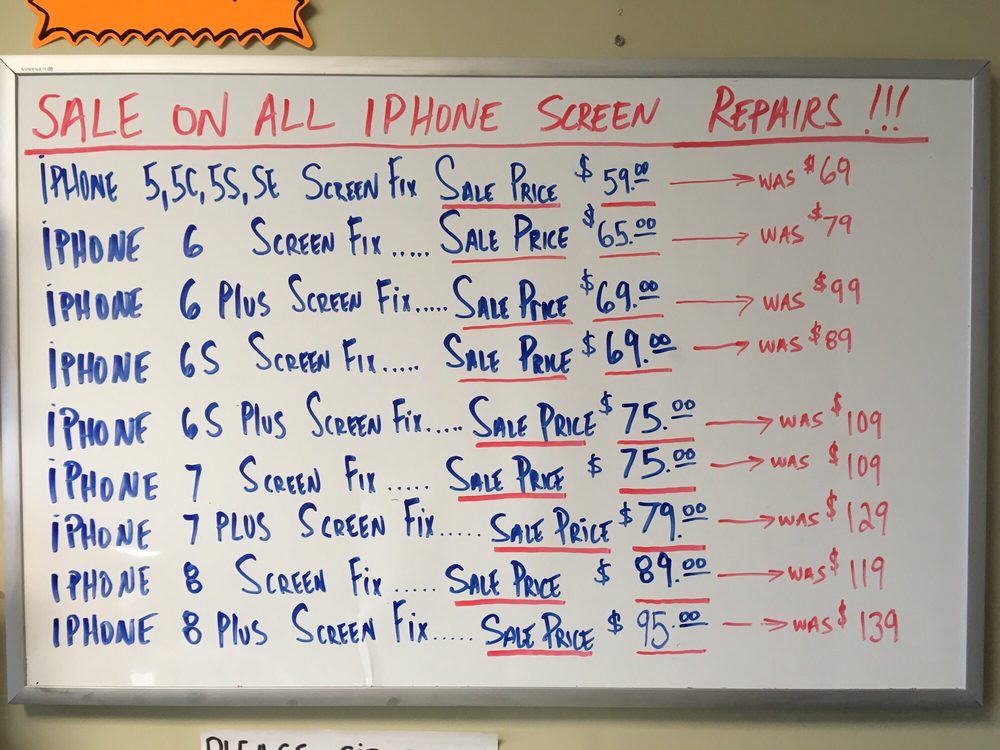 SALE ON ALL IPHONE SCREEN REPAIRS !!!
iPHONE 5,5C,5S,SE SCREEN FIX SALE PRICE $59.00 → WAS $69
iPHONE 6 SCREEN FIX..... SALE PRICE $65.00 → WAS $79
iPHONE 6 PLUS SCREEN FIX..... SALE PRICE $69.00 → WAS $99
iPHONE 6S SCREEN FIX..... SALE PRICE $69.00 → WAS $89
iPHONE 6S PLUS SCREEN FIX..... SALE PRICE $75.00 → WAS $109
iPHONE 7 SCREEN FIX ..... SALE PRICE $75.00 → WAS $109
iPHONE 7 PLUS SCREEN FIX..... SALE PRICE $79.00 → WAS $129
IPHONE 8 SCREEN FIX ..... SALE PRICE $89.00 → WAS $119
IPHONE 8 PLUS SCREEN FIX..... SALE PRICE $95.00 → WAS $139
PLEASE